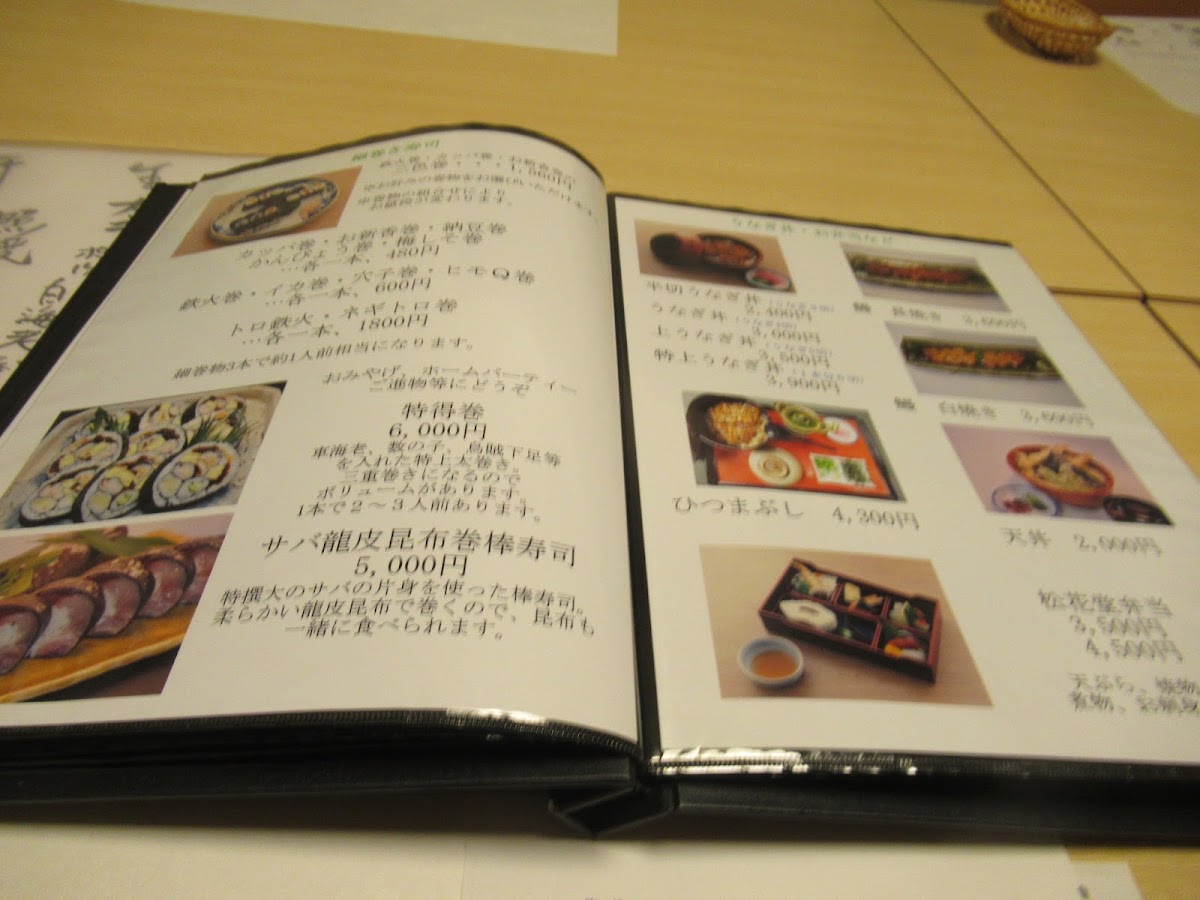 細巻き寿司
鉄火巻・カッパ巻・お新香巻の
三色巻・・・1,600円
※お好みの巻物をお選びいただけます。
※巻物の組合せにより
お値段が変わります。
カッパ巻・お新香巻・納豆巻
かんぴょう巻・梅しそ巻
…各一本、480円
鉄火巻・イカ巻・穴子巻・ヒモQ巻
…各一本、600円
トロ鉄火・ネギトロ巻
…各一本、1800円
細巻物3本で約1人前相当になります。
おみやげ、ホームパーティー
ご進物等にどうぞ
特得巻
6,000円
車海老、数の子、烏賊下足等
を入れた特上太巻き。
三重巻きになるので
ボリュームがあります。
1本で2～3人前あります。
サバ龍皮昆布巻棒寿司
5,000円
特撰大のサバの片身を使った棒寿司。
柔らかい龍皮昆布で巻くので、昆布も
一緒に食べられます。
うなぎ丼・お弁当など
半切うなぎ丼
2,400円
うなぎ丼
3,000円
上うなぎ丼
3,500円
特上うなぎ丼
3,900円
鰻 長焼き 3,600円
鰻 白焼き 3,600円
ひつまぶし 4,300円
天丼 2,000円
松花堂弁当
3,500円
4,500円
天ぷら、焼物
煮物、お刺身